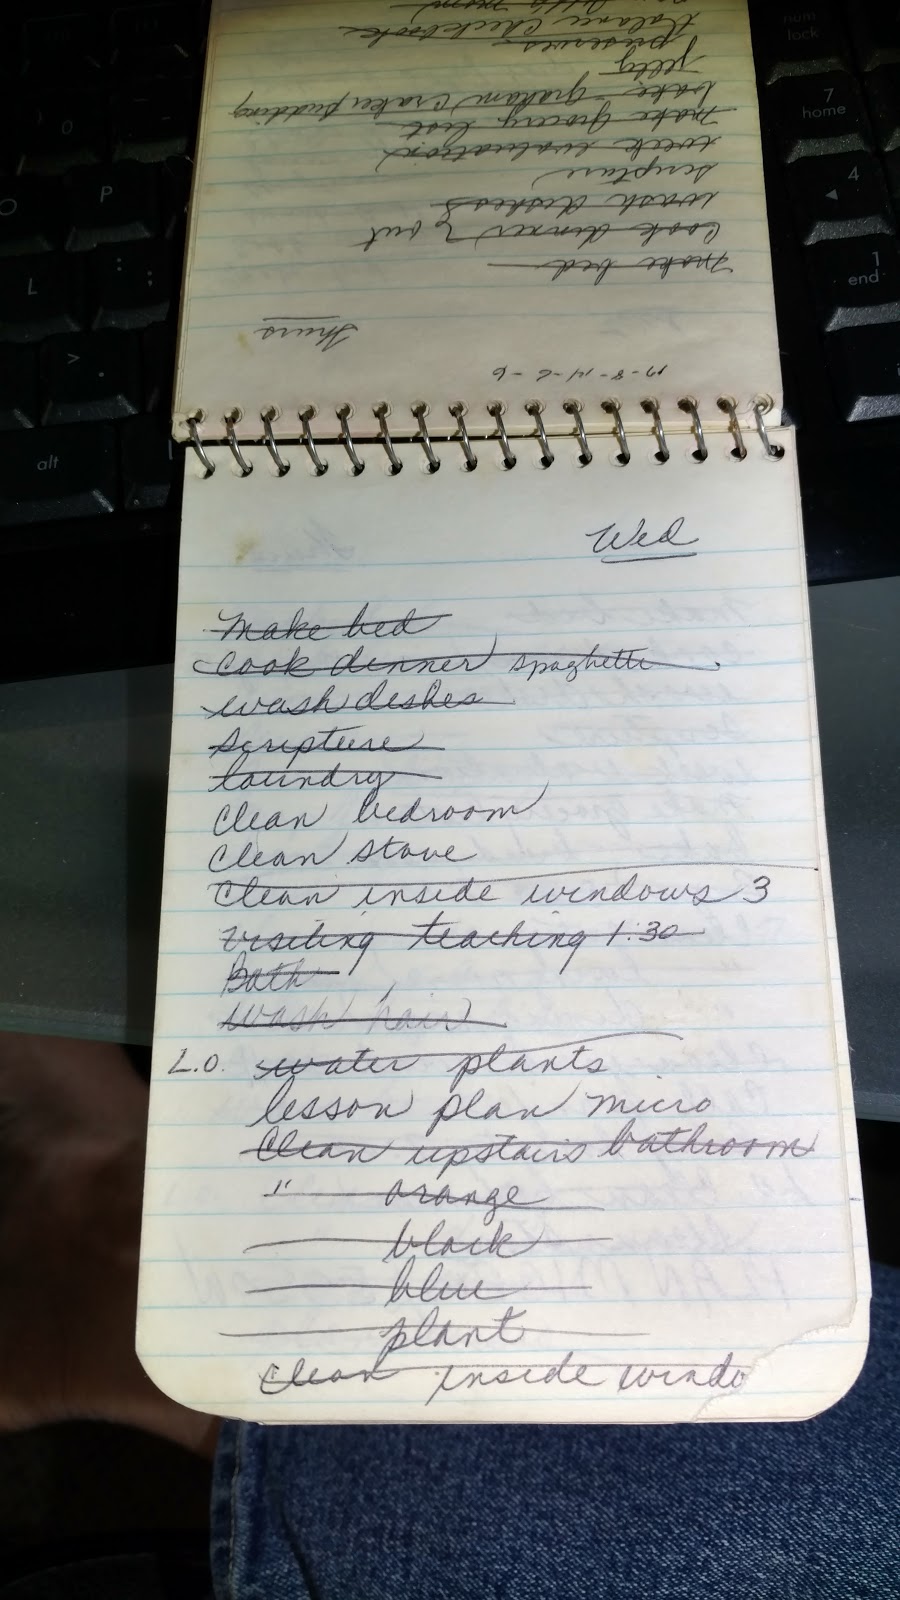 Balance Checkbook
preserves
jelly
bake - graham Craker pudding
make grocery list
week evaluation
scripture
wash dishes
cook dinner out
make bed
Thurs
17-8-14-6-6
Wed
Make bed
Cook dinner spaghetti
wash dishes
Scripture
laundry
Clean bedroom
Clean stove
Clean inside windows 3
visiting teaching 1:30
Bath
wash hair
L.O. water plants
lesson plan micro
Clean upstairs bathroom
" orange
black
blue
plant
Clean inside windo
num lock
7 home
4
1 end
O
P
L
: ;
>
alt